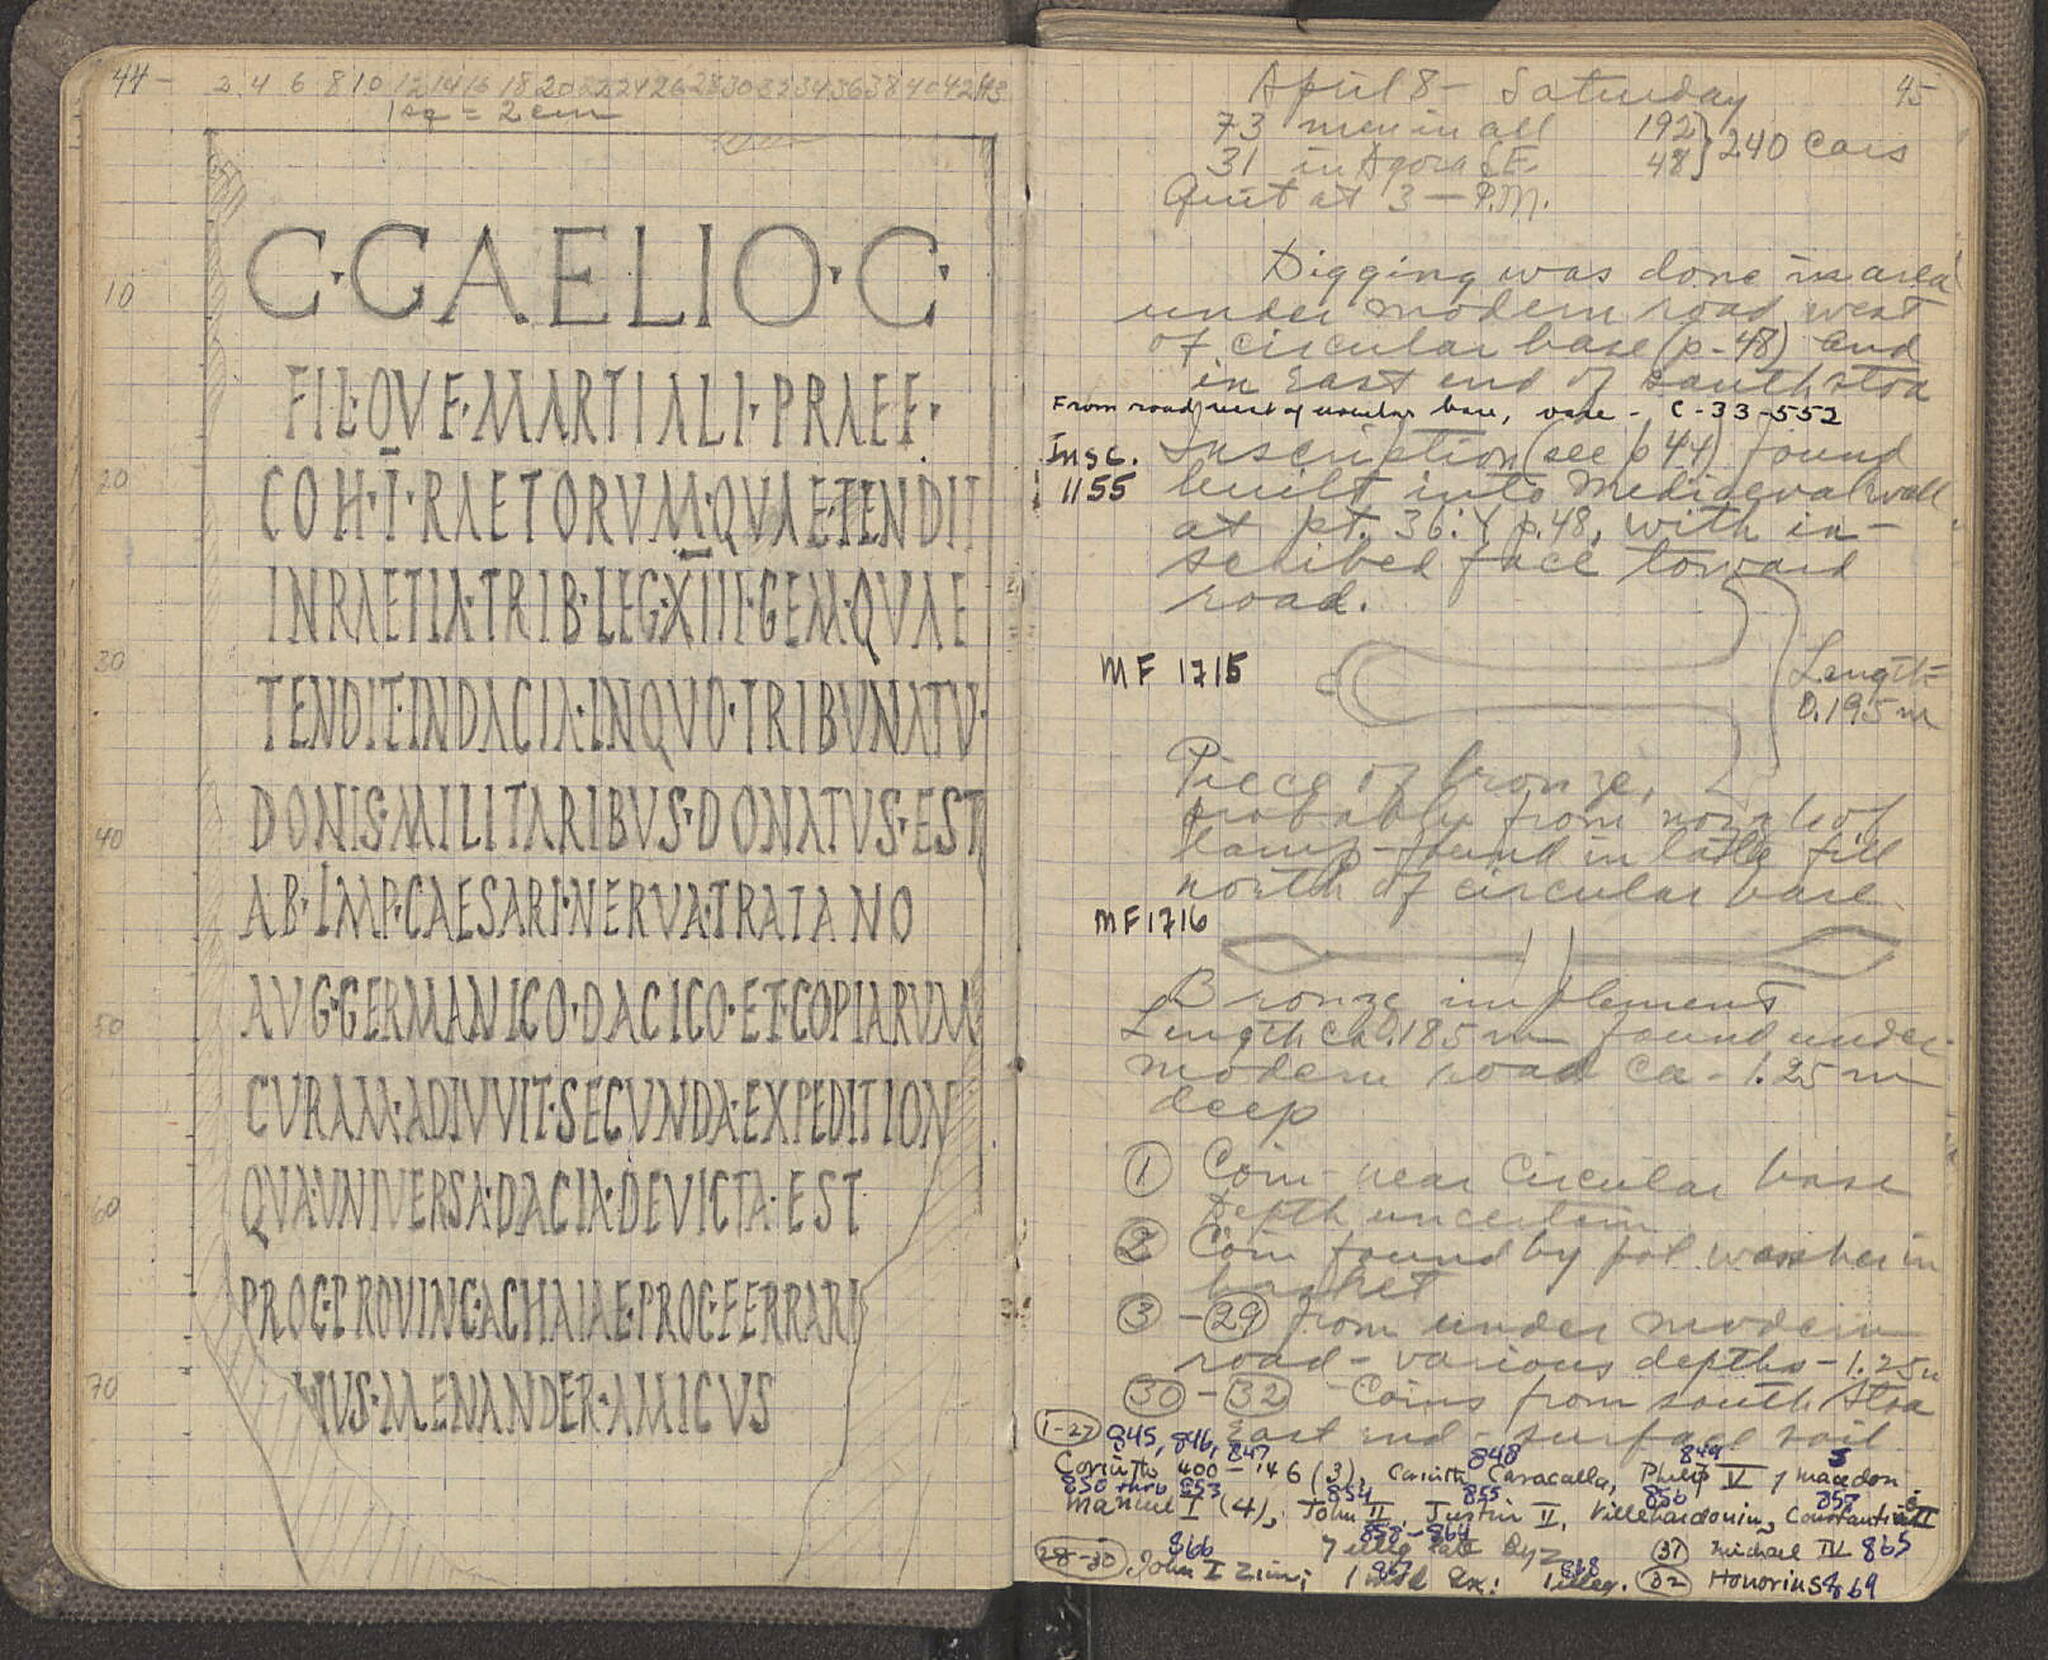 44 -
2 4 6 8 10 12 14 16 18 20 22 24 26 28 30 32 34 36 38 40 42 43
1 sq = 2 cm
C · CAELIO · C ·
10
FIL·OVF·MARTIALI·PRAEF·
20
COH·I·RAETORVM·QVAE·TENDIT
INRAETIA·TRIB·LEG·XIII·GEM·QVAE
30
TENDIT·INDACIA·INQVO·TRIBVNATV·
DONIS·MILITARIBVS·DONATVS·EST
40
AB·IMP·CAESARI·NERVA·TRAIANO
AVG·GERMANICO·DACICO·ET·COPIARVM
50
CVRAM·ADIVVIT·SECVNDA·EXPEDITION
QVA·VNIVERSA·DACIA·DEVICTA·EST
60
PROC·PROVINC·ACHAIAE·PROC·FERRARI
70
IVS·MENANDER·AMICVS
45
April 8 - Saturday
73 men in all 192
31 in Agora S E. 48 } 240 cars
Quit at 3 - P.M.
Digging was done in area
under modern road west
of circular base (p-48) and
in East end of south stoa
From road west of circular base, vase - C-33-552
Insc. 1155
Inscription (see p 44) found
built into Mediaeval wall
at pt. 36:Y p.48, with in-
scribed face toward
road.
MF 1715
Length
0.195 m
Piece of bronze,
probably from nozzle of
lamp - found in late fill
north of circular base
MF 1716
Bronze implement
Length ca 0.185 m found under
modern road ca - 1.25 m
deep
1 Coin - near Circular base
Depth uncertain
2 Coin found by pot washer in
basket
3 - 29 from under modern
road - various depths - 1.25 m
30 - 32 Coins from south stoa
East end - surface soil
1-27 845, 846, 847 848 849
Corinth 400-146 (3), Corinth Caracalla, Philip V of Macedon
850 thru 853 854 855 856 857
Manuel I (4), John II, Justin II, Villehardouin, Constantine
858-864
7 illeg late Byz 31 Michael IV 865
866 867 868
28-30 John I Zim; 1 illeg. 32 Honorius 869